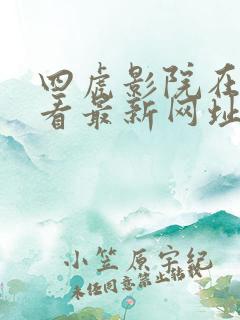 四虎影院在
看最新网址
小笠原宇纪
未经同意禁止转载